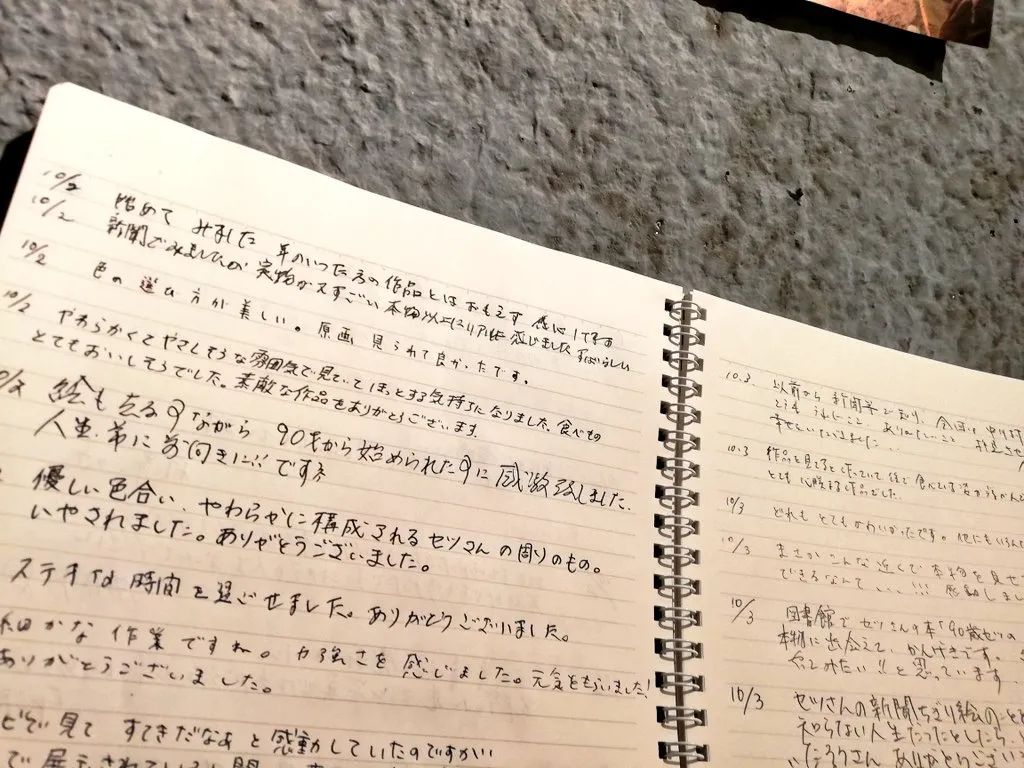 10/2 始めて みました 年のいった方の作品とはおもえず 感心
10/2 新聞でみましたが、実物がスすごい 本物以上にリアルに感じました すばらしい
10/2 色の選び方が美しい。原画見られて良かったです。
10/2 やわらかくてやさしそうな雰囲気で見ていてほっとする気持ちになりました。食べもの
とてもおいしそうでした。素敵な作品をありがとうございます。
絵も ながら 90才から始められた に感激致しました。
人生、常に前向きに!! です
優しい色合い、やわらかに構成されるセツさんの周りのもの。
いやされました。ありがとうございました。
ステキな時間を過ごせました。ありがとうございました。
細かな作業ですね。力強さを感じました。元気をもらいました!
ありがとうございました。
見て すてきだなあと感動していたのですが
で展示されていると聞
10.3 以前から新聞等で知り、今回
とても うれしこと ありがたいこと
幸せいただきました…
10.3 作品を見てると 後で食べている姿が
とても 作品でした。
10/3 どれもとてもかわいかったです。他にも
10/3 まさか こんな近くで本物を見せ
できるなんて…!!! 感動しまし
10/3 図書館でセツさんの本「90歳セツの
本物に出会えて、かんげきです。
みたい!!と思っています…
10/3 セツさんの新聞ちぎり絵のこと
知らない人生だったとしたら、
ありがとうござい